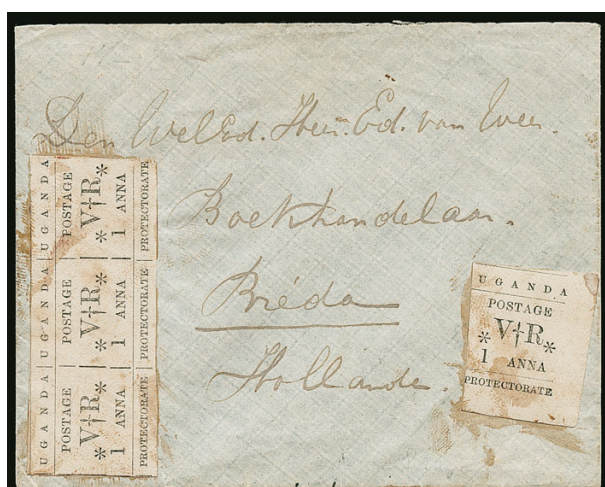 Den WelEd. Heer. Ed. van Wees.
Boekhandelaar.
Bréda
Hollande.
UGANDA
POSTAGE
*V†R*
1 ANNA
PROTECTORATE
UGANDA
POSTAGE
*V†R*
1 ANNA
PROTECTORATE
UGANDA
POSTAGE
*V†R*
1 ANNA
PROTECTORATE
UGANDA
POSTAGE
*V†R*
1 ANNA
PROTECTORATE